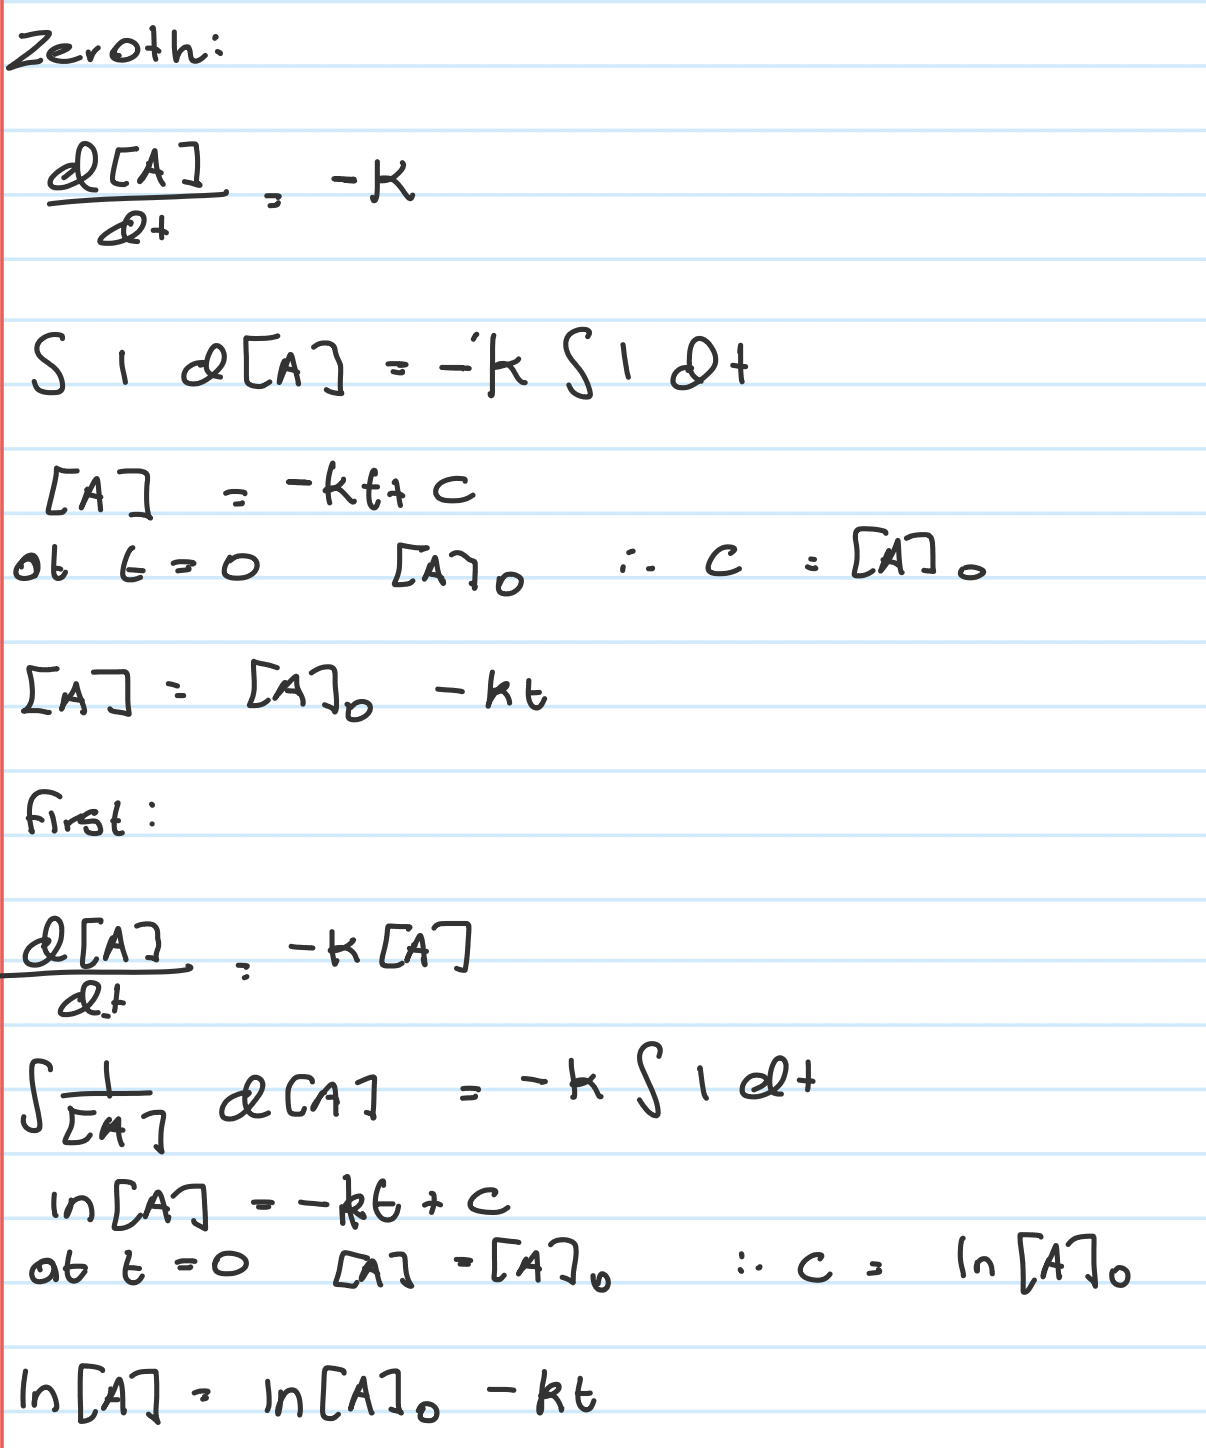 Zeroth:
d[A]/dt = -k
∫ 1 d[A] = -k ∫ 1 dt
[A] = -kt + c
at t = 0 [A]₀ ∴ c = [A]₀
[A] = [A]₀ - kt
first:
d[A]/dt = -k[A]
∫ 1/[A] d[A] = -k ∫ 1 dt
ln[A] = -kt + c
at t = 0 [A] = [A]₀ ∴ c = ln[A]₀
ln[A] = ln[A]₀ - kt